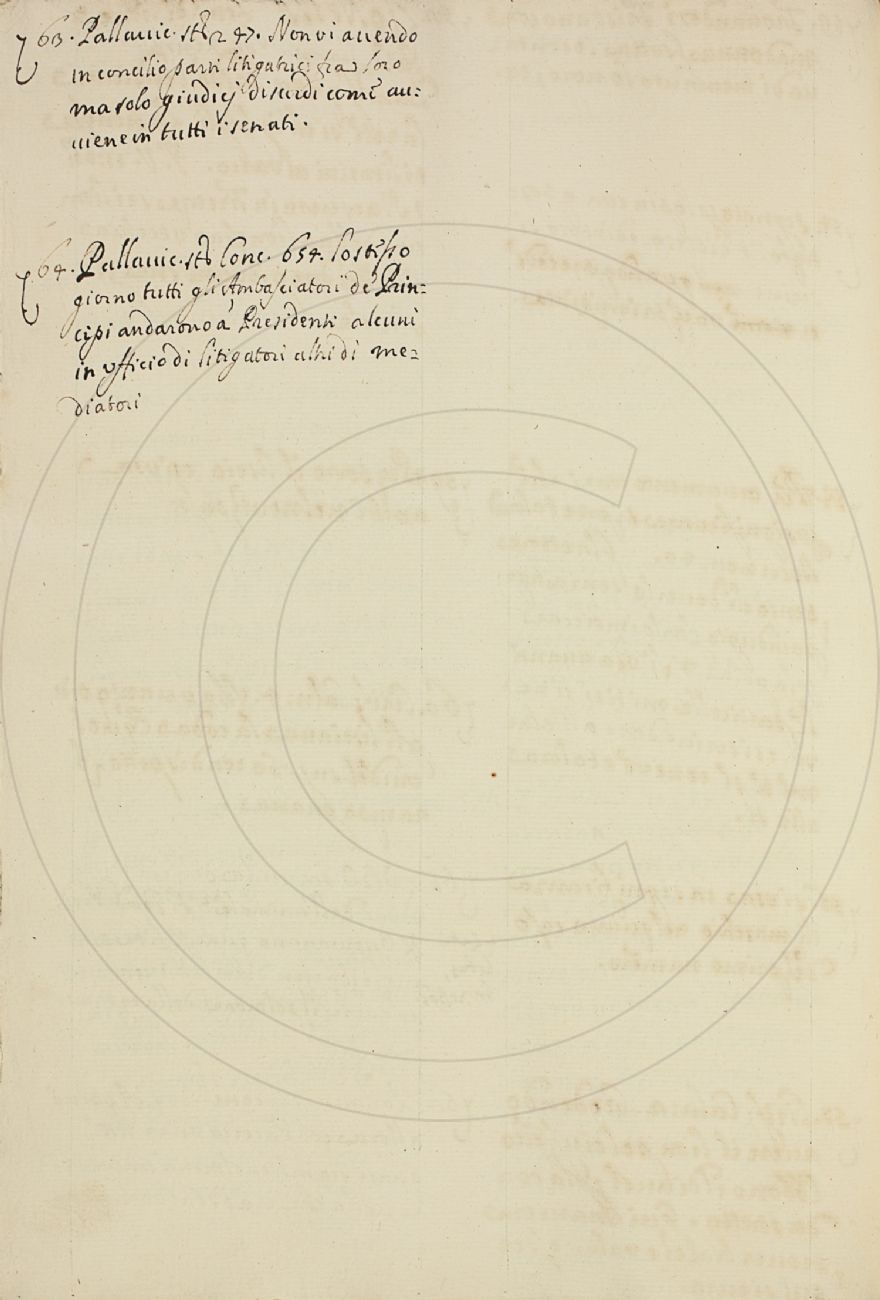 63. Pallauic. stõr 2 47. Non vi auendo
in concilio parti litigatrici fra loro
ma solo giudicj discordi come au:
uiene in tutti i senati.
64. Pallauic. stõ Conc. 654. lo stesso
giorno tutti gli Ambasciatori de Prin:
cipi andarono a' Presidenti alcuni
in ufficio di litigatori altri di me:
diatori